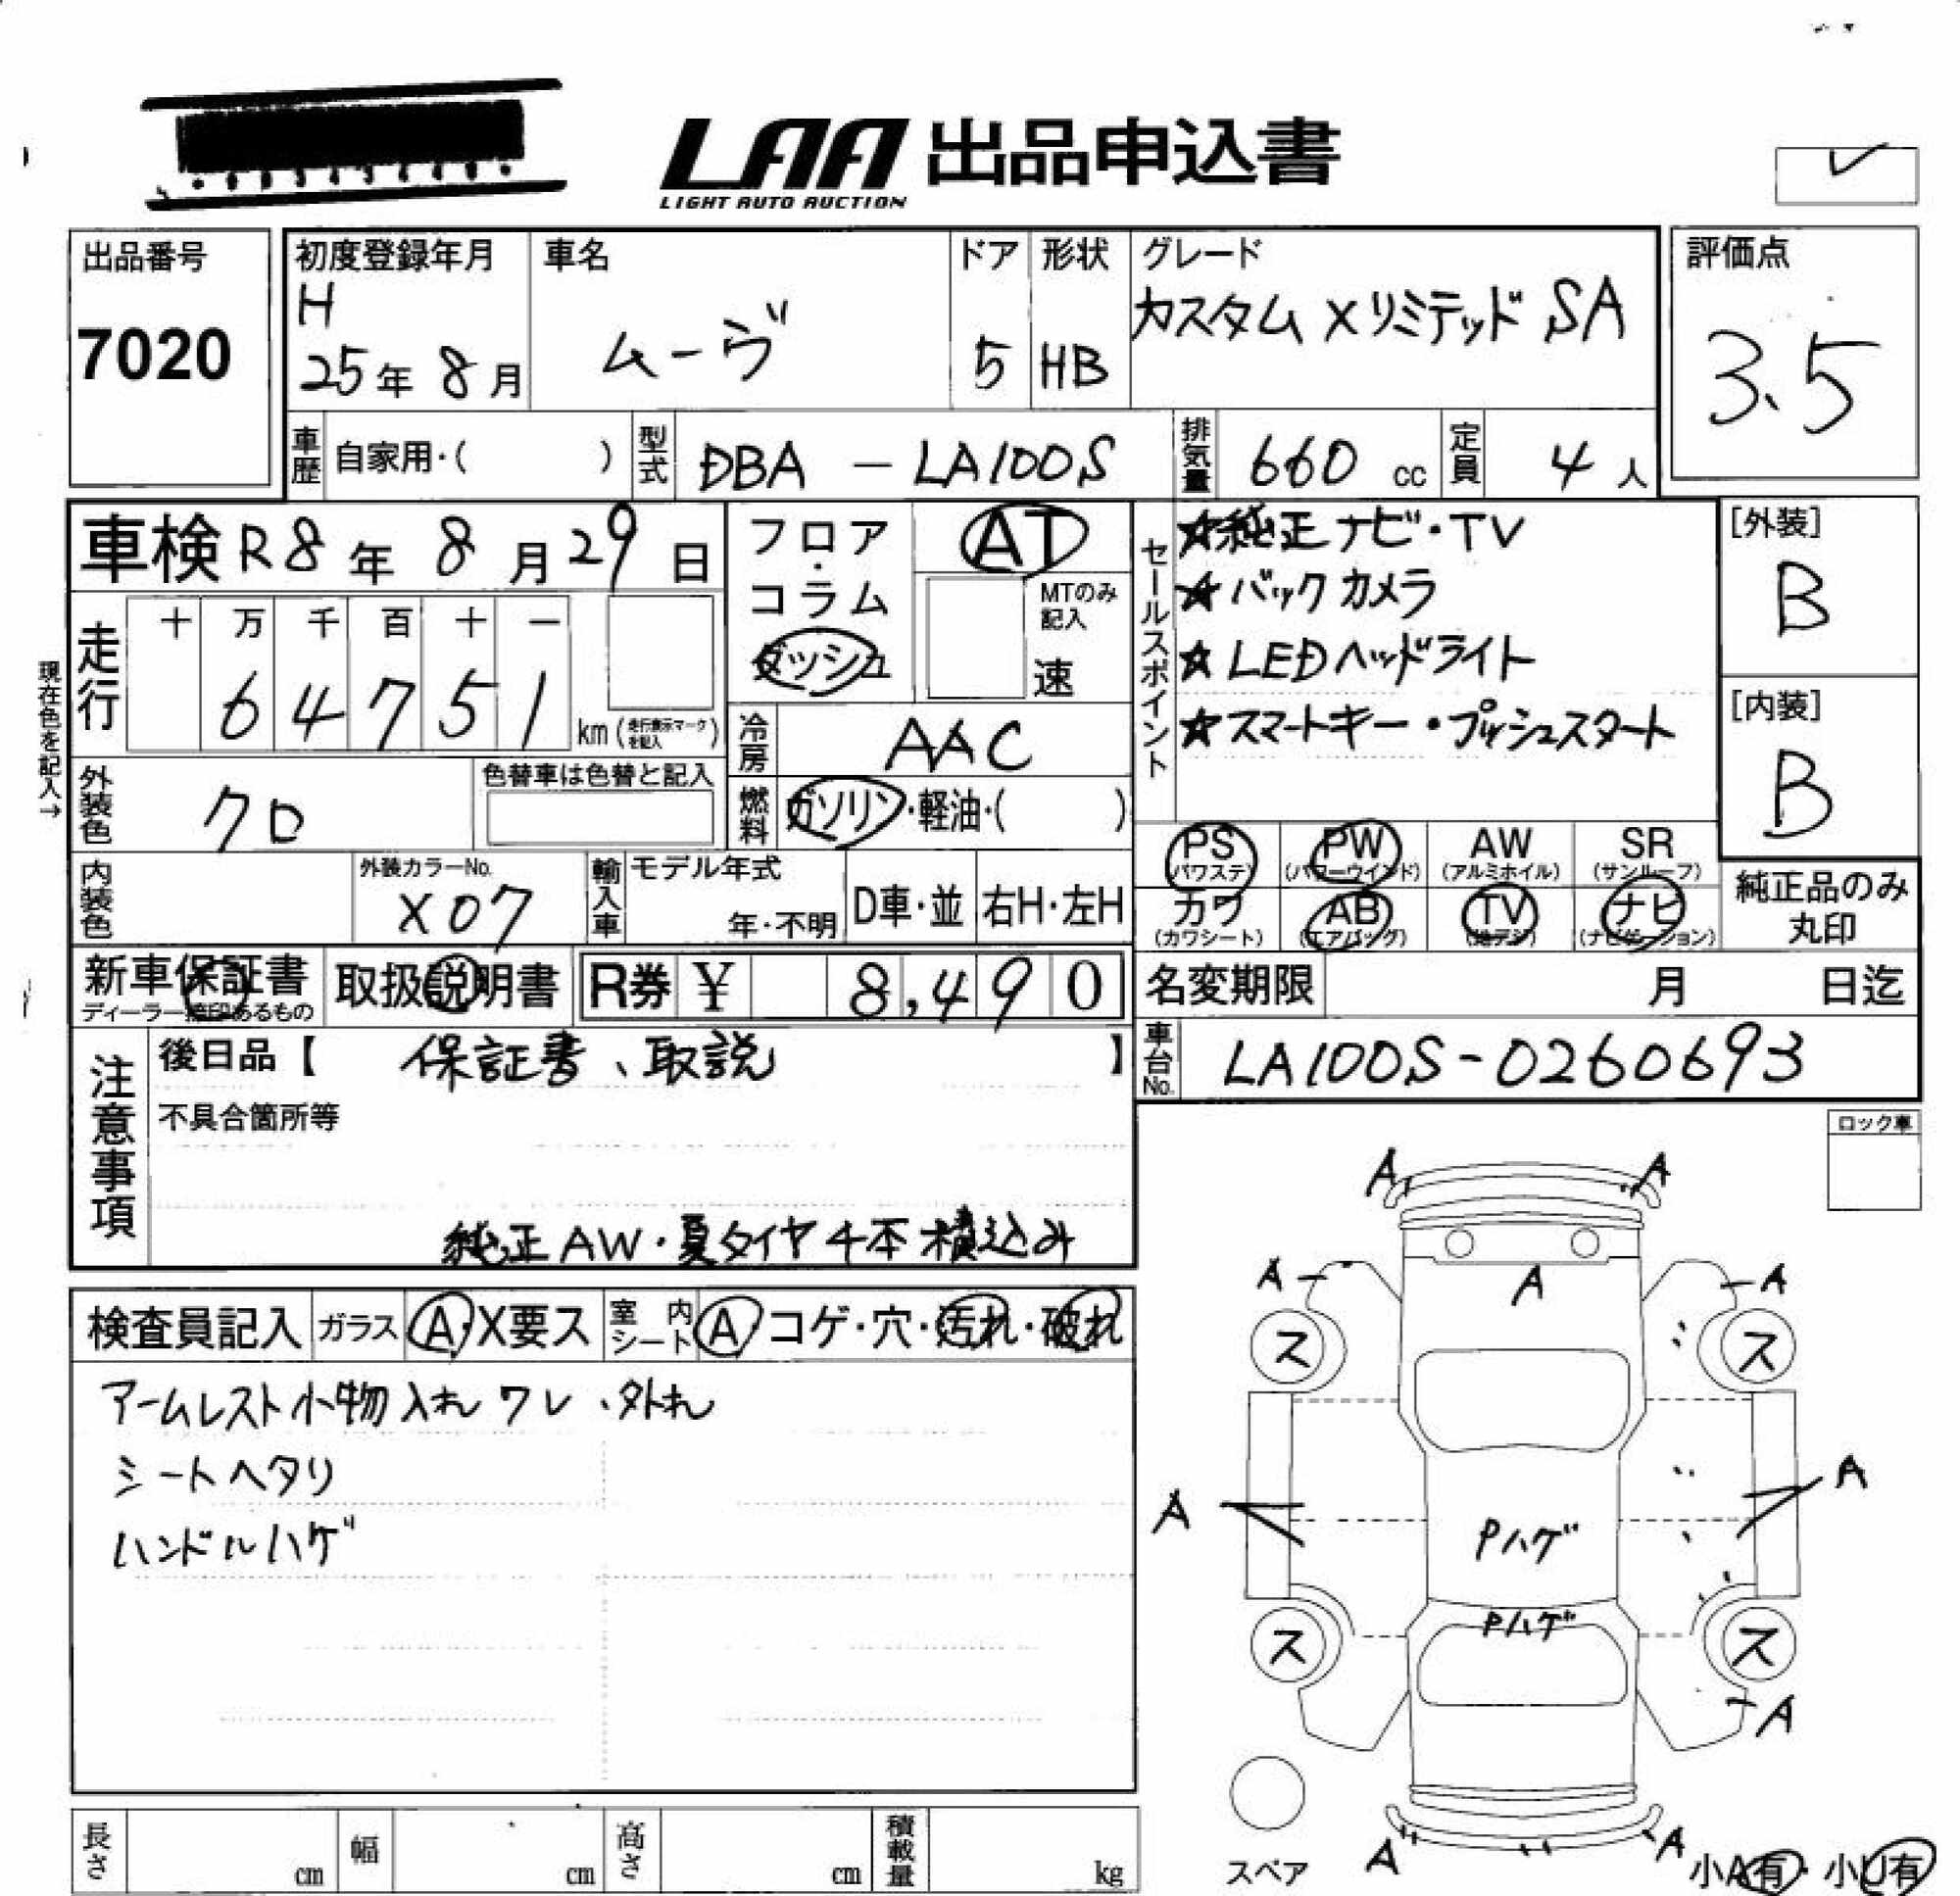 LAA 出品申込書
LIGHT AUTO AUCTION
出品番号
7020
初度登録年月
H
25年 8月
車名
ムーヴ
ドア
5
形状
HB
グレード
カスタム X リミテッド SA
評価点
3.5
車歴 自家用・( )
型式 DBA - LA100S
排気量 660 cc
定員 4 人
車検 R8年 8月 29日
フロア・コラム
ダッシュ
AT
MTのみ記入
速
セールスポイント
☆純正ナビ・TV
☆バックカメラ
☆LEDヘッドライト
☆スマートキー・プッシュスタート
[外装]
B
[内装]
B
現在色を記入→
走行
十 万 千 百 十 一
6 4 7 5 1 km (走行表示マークを記入)
冷房 AAC
外装色 クロ
色替車は色替と記入
燃料 ガソリン・軽油・( )
PS (パワステ)
PW (パワーウインド)
AW (アルミホイル)
SR (サンルーフ)
カワ (カワシート)
AB (エアバッグ)
TV (地デジ)
ナビ (ナビゲーション)
純正品のみ丸印
内装色
外装カラーNo.
X07
輸入車
モデル年式
年・不明
D車・並
右H・左H
新車保証書
ディーラー捺印あるもの
取扱説明書
R券 ¥ 8,490
名変期限 月 日迄
車台No. LA100S-0260693
注意事項
後日品【 保証書、取説 】
不具合箇所等
純正AW・夏タイヤ4本積込み
ロック車
検査員記入
ガラス A・X要ス
室内シート A コゲ・穴・汚れ・破れ
アームレスト小物入れワレ、外れ
シートヘタリ
ハンドルハゲ
A A
A A A
ス ス
A A
Pハゲ
Pハゲ
ス ス
A
A A
スペア
小A有・小U有
長さ cm
幅 cm
高さ cm
積載量 kg